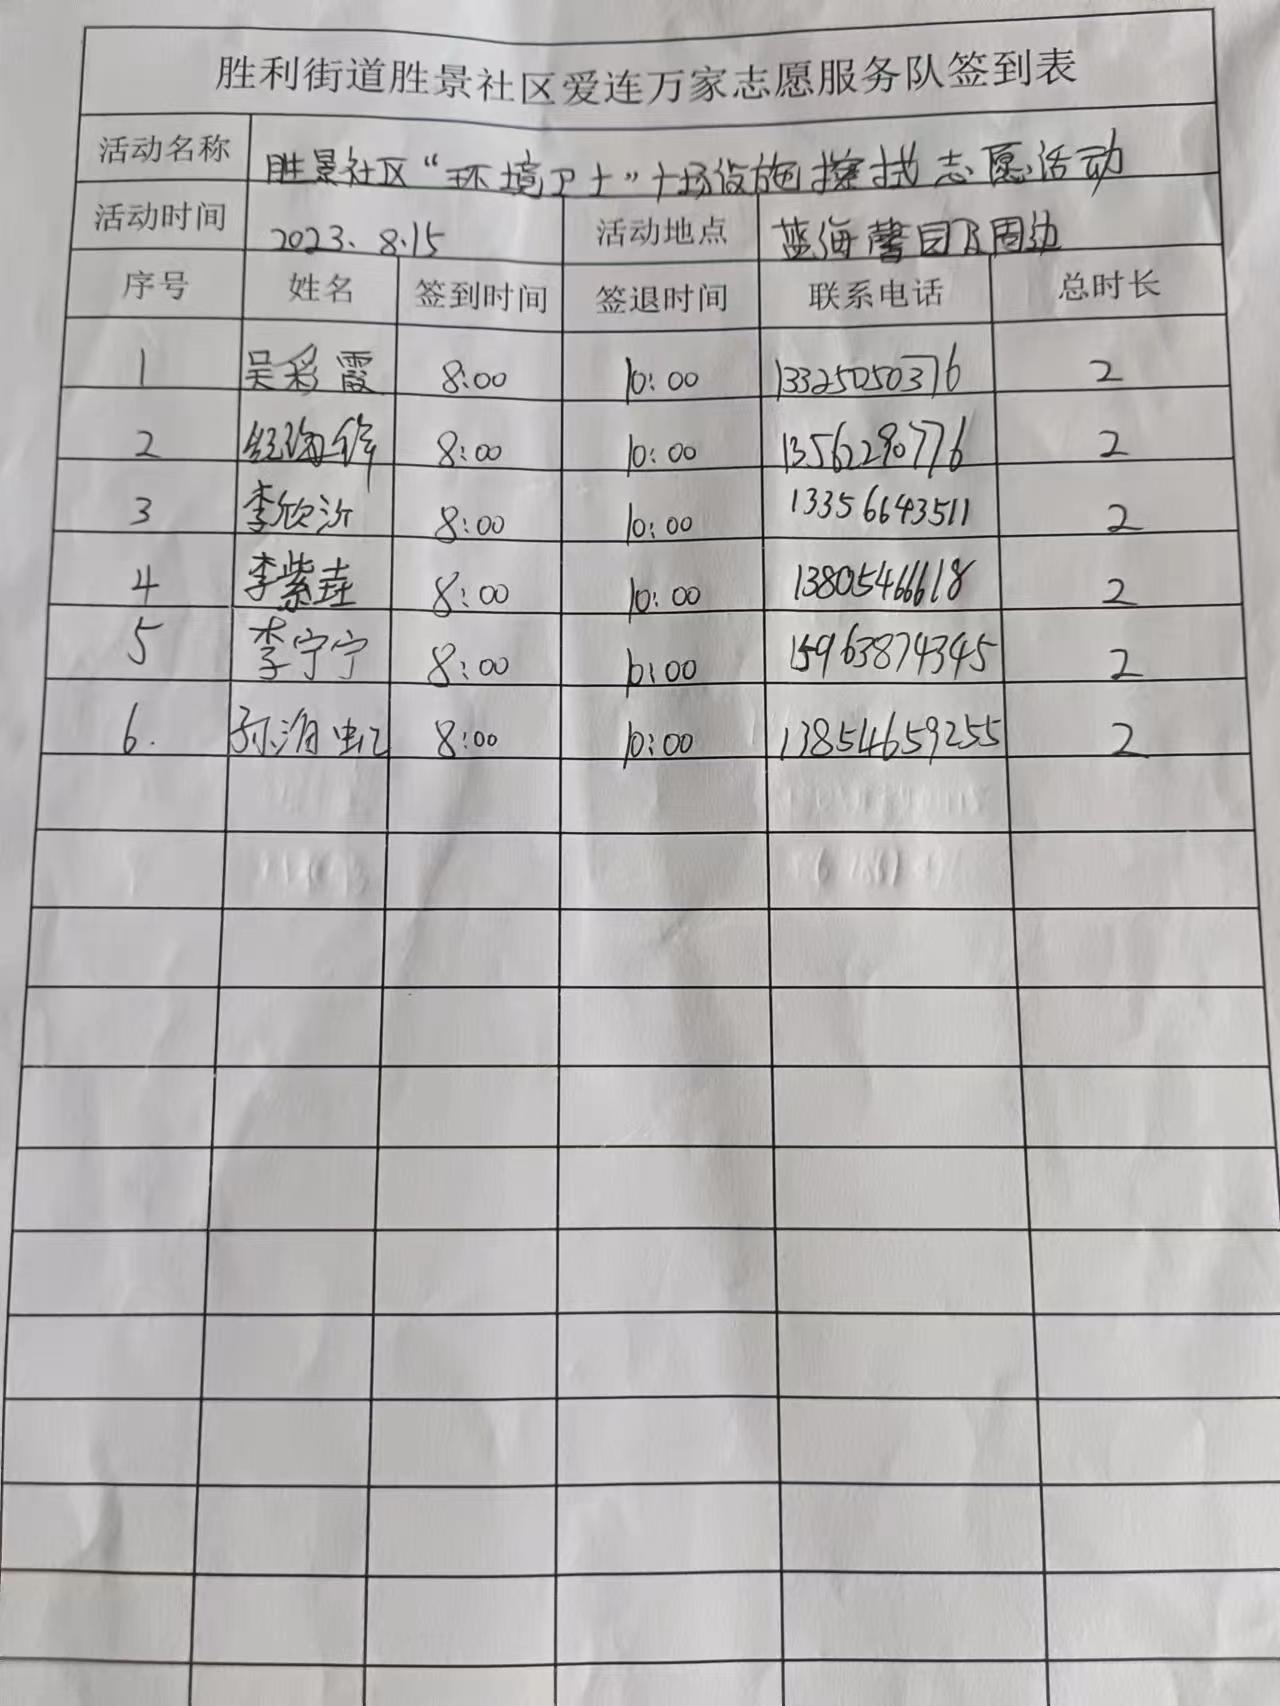 胜利街道胜景社区爱连万家志愿服务队签到表
活动名称 胜景社区“环境卫士”广场设施擦拭志愿活动
活动时间 2023.8.15 活动地点 蓝海馨园及周边
序号 姓名 签到时间 签退时间 联系电话 总时长
1 吴彩霞 8:00 10:00 13325050376 2
2 8:00 10:00 13562290776 2
3 李欣汐 8:00 10:00 13356643511 2
4 李紫垚 8:00 10:00 13805466618 2
5 李宁宁 8:00 10:00 15963874345 2
6. 孙海虹 8:00 10:00 13854659255 2